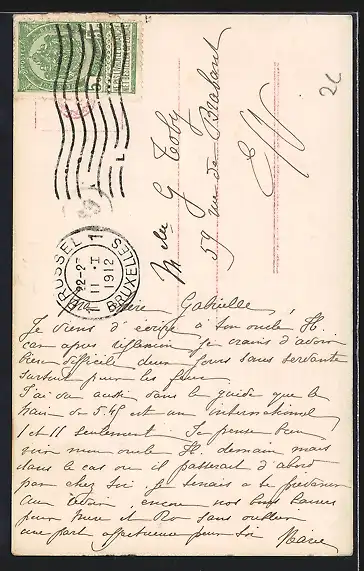 BRUSSEL 1 BRUXELLES
22-2
11 ·I
1912
Mlle G Toby
59 rue de Brabant
E/V
2c
Chère Gabrielle,
Je viens d'écrire à ton oncle H.
car après réflexion je crains d'avoir
bien difficile deux jours sans servante
surtout pour les feux.
J'ai vu aussi dans le guide que le
train de 5.45 est un international
1 et 11 seulement. Je pense bien
voir mon oncle H. demain mais
dans le cas où il passerait d'abord
par chez toi, je tenais à te prévenir
Au revoir, encore nos bons baisers
pour Mère et sans oublier
une part affectueuse pour toi
Marie